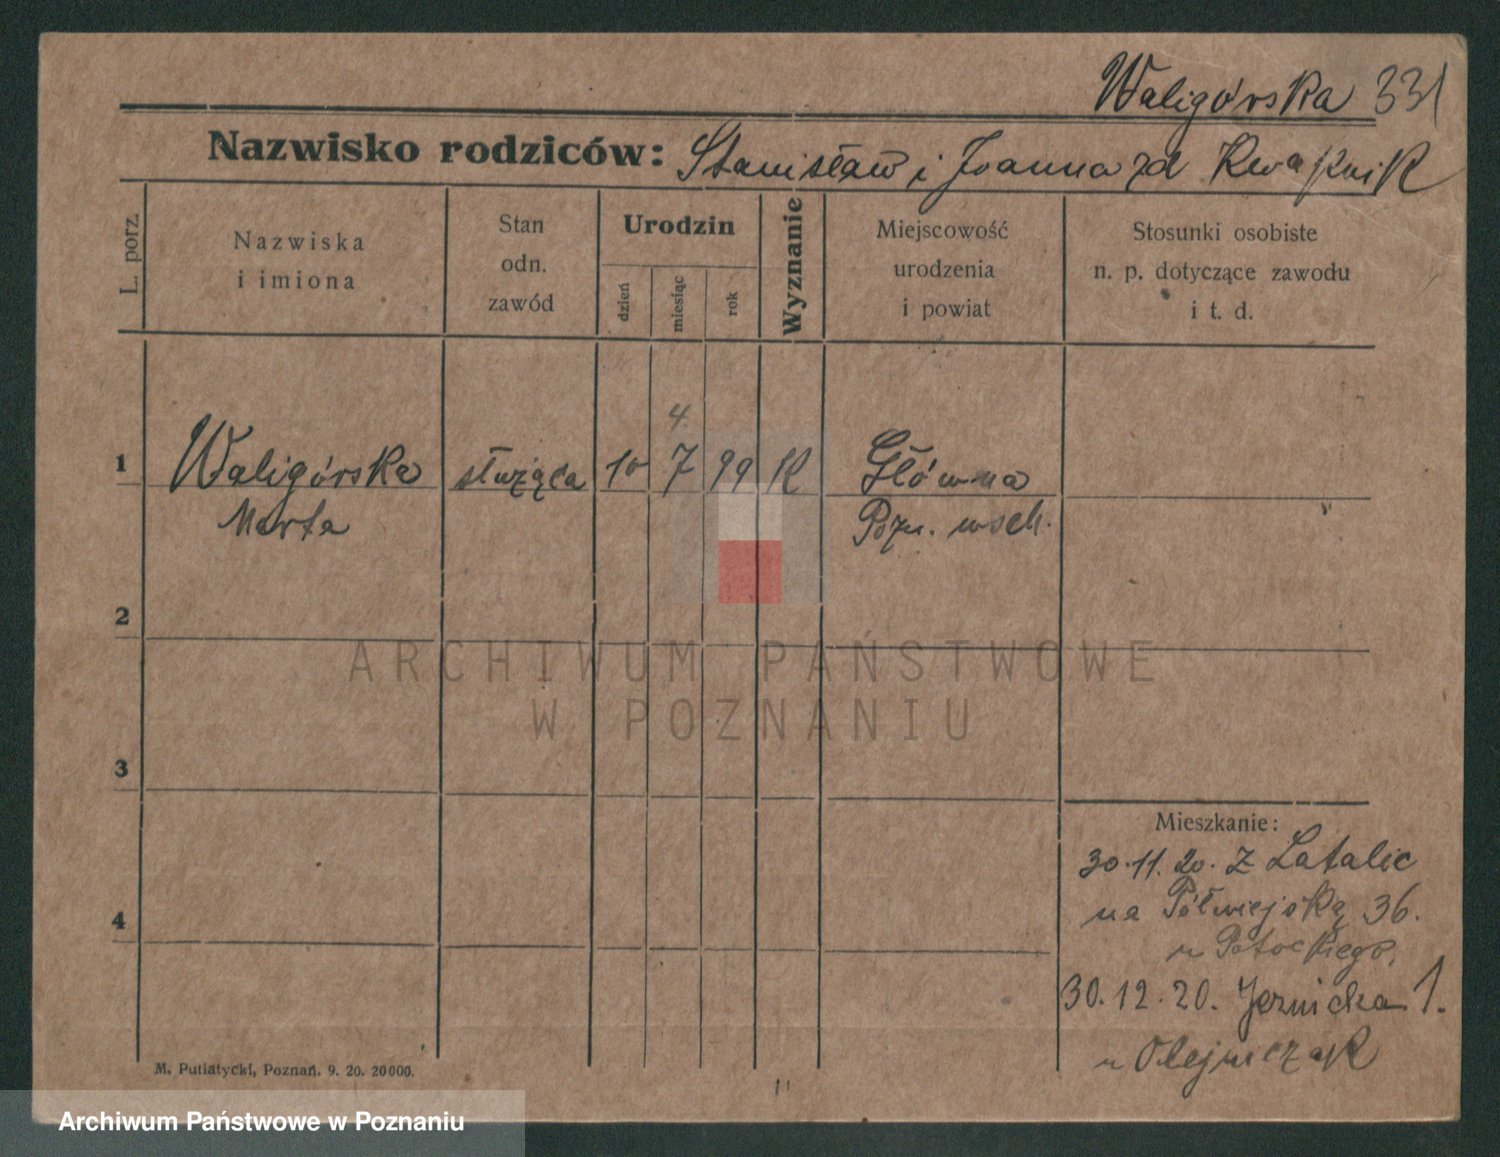 Waligórska 331
Nazwisko rodziców: Stanisław i Joanna zd Kwaśnik
L. porz.
Nazwiska
i imiona
Stan
odn.
zawód
Urodzin
dzień
miesiąc
rok
Wyznanie
Miejscowość
urodzenia
i powiat
Stosunki osobiste
n. p. dotyczące zawodu
i t. d.
4.
1 Waligórska służąca 10 7 99 K Główna
Marta Pozn. wsch.
2
ARCHIWUM PAŃSTWOWE
W POZNANIU
3
Mieszkanie:
30.11.20. z Latalic
4
na Półwiejską 36.
u Potockiego.
30.12.20. Jeżnicka 1.
u Olejniczak
M. Putiatycki, Poznań. 9. 20. 20000.
Archiwum Państwowe w Poznaniu